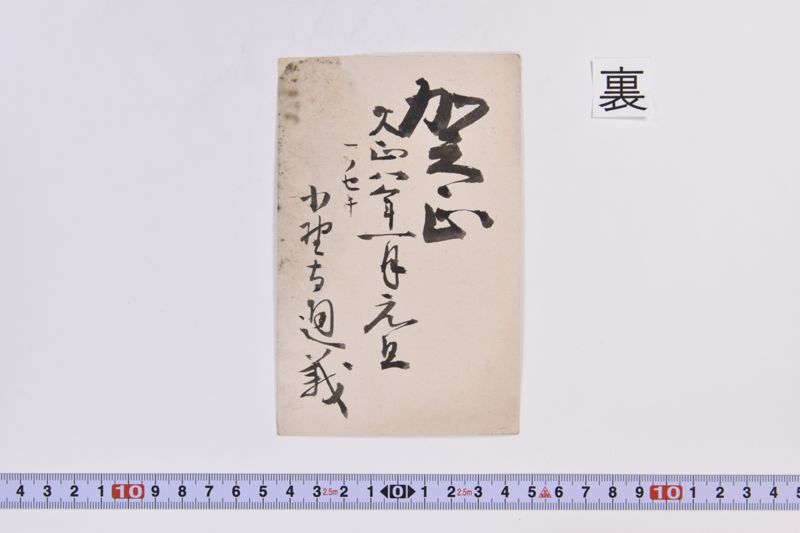 賀正
大正八年一月元旦
一ノ七キ
小野寺
義
裏
4 3 2 1 10 9 8 7 6 5 4 3 2.5m 2 1 0 1 2 2.5m 3 4 5 6 7 8 9 10 1 2 3 4 5